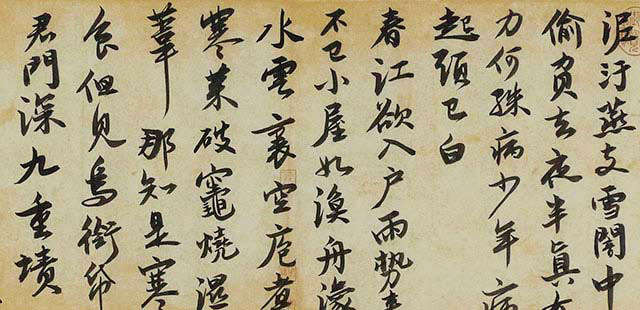 泥汙燕支雪闇中
偷負去夜半眞有
力何殊病少年病
起頭已白
春江欲入戶雨勢來
不已小屋如漁舟濛
水雲裏空庖煮
寒菜破竈燒濕
葦那知是寒
食但見烏銜帋
君門深九重墳